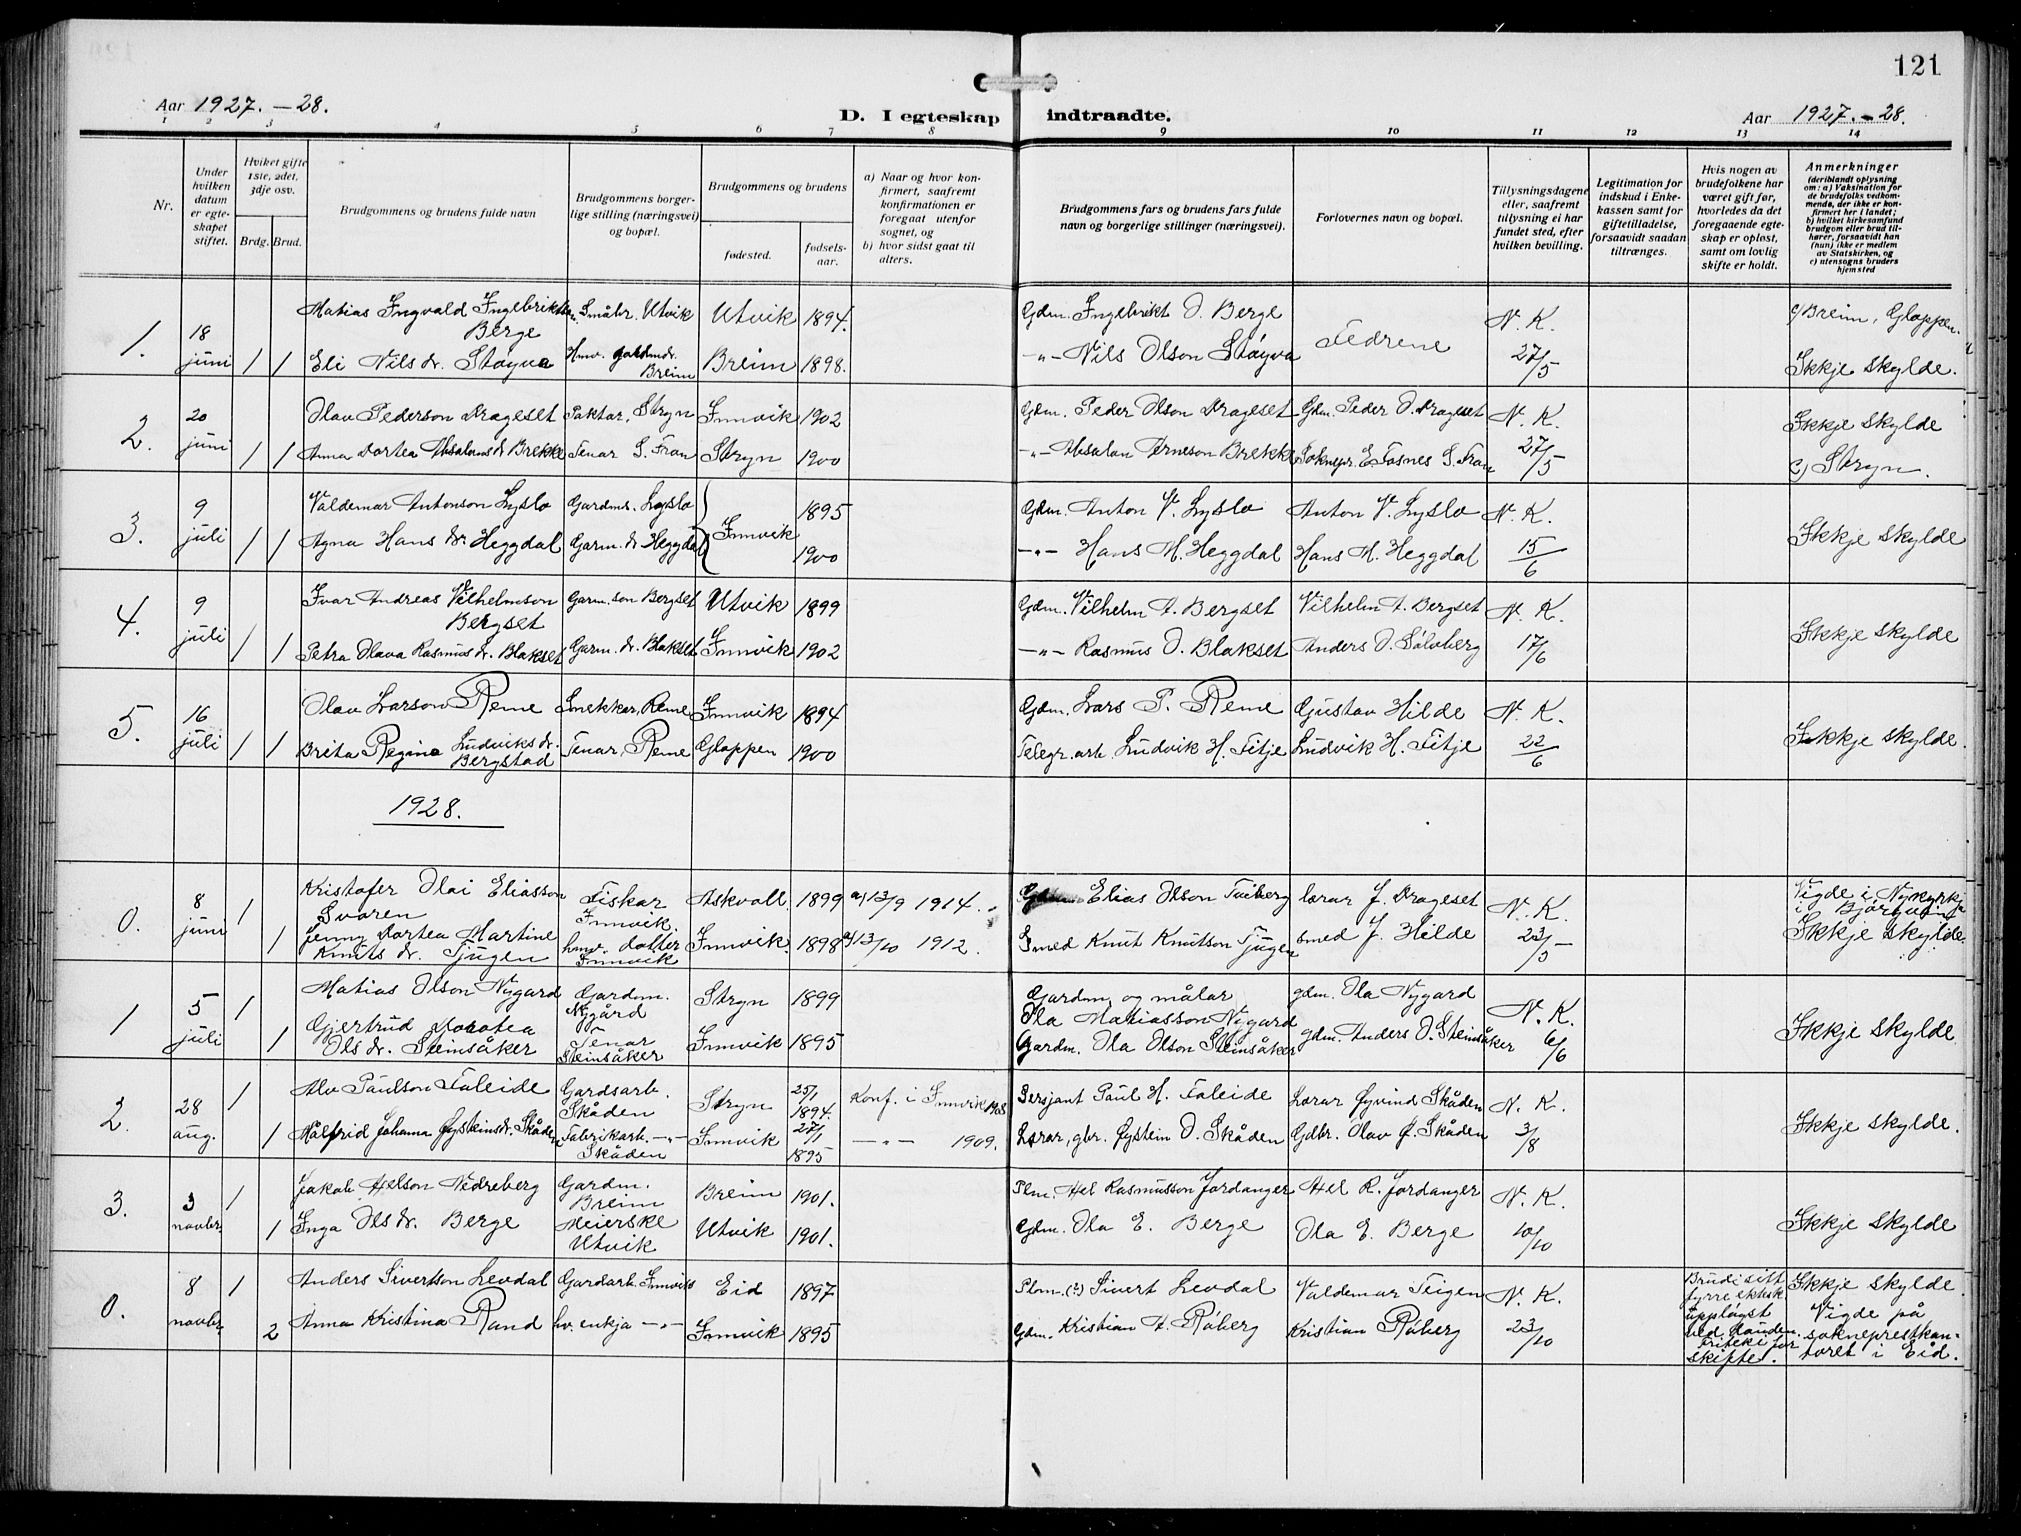 121
Aar 1927. - 28.
D. I egteskap indtraadte.
Aar 1927. - 28.
1 2 3 4 5 6 7 8 9 10 11 12 13 14
Nr.
Under hvilken datum er egteskapet stiftet.
Hvilket gifte 1ste, 2det, 3dje osv.
Brdg. Brud.
Brudgommens og brudens fulde navn
Brudgommens borgerlige stilling (næringsvei) og bopæl.
Brudgommens og brudens
fødested.
fødselsaar.
a) Naar og hvor konfirmert, saafremt konfirmationen er foregaat utenfor sognet, og
b) hvor sidst gaat til alters.
Brudgommens fars og brudens fars fulde navn og borgerlige stillinger (næringsvei).
Forlovernes navn og bopæl.
Tillysningsdagene eller, saafremt tillysning ei har fundet sted, efter hvilken bevilling.
Legitimation for indskud i Enkekassen samt for giftetilladelse, forsaavidt saadan tiltrænges.
Hvis nogen av brudefolkene har været gift før, hvorledes da det foregaaende egteskap er opløst, samt om lovlig skifte er holdt.
Anmerkninger
(deriblandt oplysning om: a) Vaksination for de brudefolks vedkommende, der ikke er konfirmert her i landet; b) hvilket kirkesamfund brudgom eller brud tilhører, forsaavidt han (hun) ikke er medlem av Statskirken, og c) utensogns bruders hjemsted
1. 18 juni 1 1
Matias Ingvald Ingebriktson Berge Småbr. Utvik Utvik 1894. Gdm. Ingebrikt O. Berge Fedrene N. K. c) Breim, Gloppen.
Eli Nilsdr. Støyva Hmv. gardmdr. Breim Breim 1898. -"- Nils Olson Støyva 27/5 Ikkje skylde.
2. 20 juni 1 1
Olav Pederson Drageset Paktar, Stryn Innvik 1902 Gdm. Peder Olson Drageset Gdm. Peder O. Drageset N. K. Ikkje skylde
Anna Dortea Absalonsdr. Brekke Tenar S. Fron Stryn 1900 -"- Absalon Arneson Brekke Soknepr. E. Fosnes S. Fron 27/5 c) Stryn.
3. 9 juli 1 1
Valdemar Antonson Lyslo Gardmd. Lyslo Innvik 1895 Gdm. Anton V. Lyslo Anton V. Lyslo N. K. Ikkje skylde
Agna Hansdr. Heggdal Garm.dr Heggdal 1900 -"- Hans M. Heggdal Hans M. Heggdal 15/6
4. 9 juli 1 1
Ivar Andreas Vilhelmson Bergset Garm.son Bergset Utvik 1899 Gdm. Vilhelm A. Bergset Vilhelm A. Bergset N. K. Ikkje skylde
Petra Olava Rasmusdr. Blakset Garm.dr. Blakset Innvik 1902 -"- Rasmus O. Blakset Anders O. Sølvberg 17/6
5. 16 juli 1 1
Olav Larson Reme Snekkar, Reme Innvik 1894 Gdm. Lars P. Reme Gustav Hilde N. K. Ikkje skylde.
Brita Regina Ludviksdr. Bergstad Tenar, Reme Gloppen 1900 Telegr.arb. Ludvik H. Fitje Ludvik H. Fitje 22/6
1928.
0. 8 juni 1
Kristofer Olai Eliasson Svoren Fiskar Innvik Askvoll 1899 a) 13/9 1914. Elias Olson lærar J. Drageset N. K. Vigde i Nykyrkja i Bjørgvin
1 Jenny Dortea Martine Knutsdr. Tjugen hmv. dotter Innvik Innvik 1898 a) 13/10 1912. Smed Knut Knutson Tjugen smed J. Hilde 23/5 Ikkje skylde.
1 5 juli 1
Matias Olson Nygard Gardm. Nygård Stryn 1899 Gardm. og målar Ola Matiasson Nygard gdm. Ola Nygard N. K. Ikkje skylde.
1 Gjertrud Dorotea Olsdr. Steinsåker Tenar Steinsåker Innvik 1895 Gardm. Ola Olson Steinsåker gdm. Anders O. Steinsåker 6/6
2. 28 aug. 1
Alv Paulson Faleide Gardsarb. Skåden Stryn 25/1 1894. Konf. i Innvik Sersjant Paul H. Faleide Lærar Øyvind Skåden N. K. Ikkje skylde.
1 Målfrid Johanna Øysteinsdr. Skåden Fabrikarb. -"- Skåden Innvik 27/1 1895 -"- 1909. Lærar, gbr. Øystein O. Skåden Gdbr. Olav Ø. Skåden 3/8
3. 3 novbr. 1
Jakob Helson Nedreberg Gardm. Breim Breim 1901. Plm. Hel Rasmusson Jordanger Hel R. Jordanger N. K.
1 Inga Olsdr. Berge Meierske Utvik Utvik 1901. Gdm. Ola E. Berge Ola E. Berge 10/10 Ikkje skylde
0. 8 novbr. 1
Anders Sivertson Levdal Gardarb. Innvik Eid 1897 Plm. (?) Sivert Levdal Valdemar Teigen N. K. Brudi sitt fyrre ektesk. uppløyst ved dauden. Friteki for skifte. Ikkje skylde. Vigde på sokneprestkantoret i Eid.
2 Anna Kristina Rand hv. enkja -"- Innvik 1895 Gdm. Kristian A. Røberg Kristian Røberg 23/10